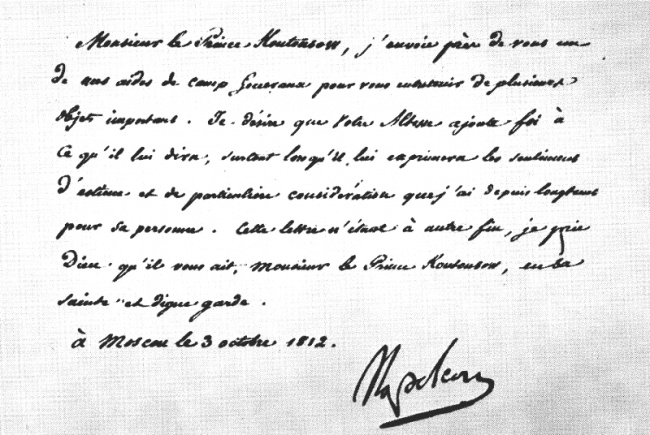 Monsieur le Prince Koutousow, j'envoie près de vous un
de mes aides de camp Generaux pour vous entretenir de plusieurs
objets important. Je désire que Votre Altesse ajoute foi à
ce qu'il lui dira, surtout lorsqu'il lui exprimera les sentimens
d'estime et de particulière considération que j'ai depuis longtems
pour sa personne. Cette lettre n'étant à autre fin, je prie
Dieu qu'il vous ait, Monsieur le Prince Koutousow, en sa
sainte et digne garde.
à Moscou le 3 octobre 1812.
Napoleon